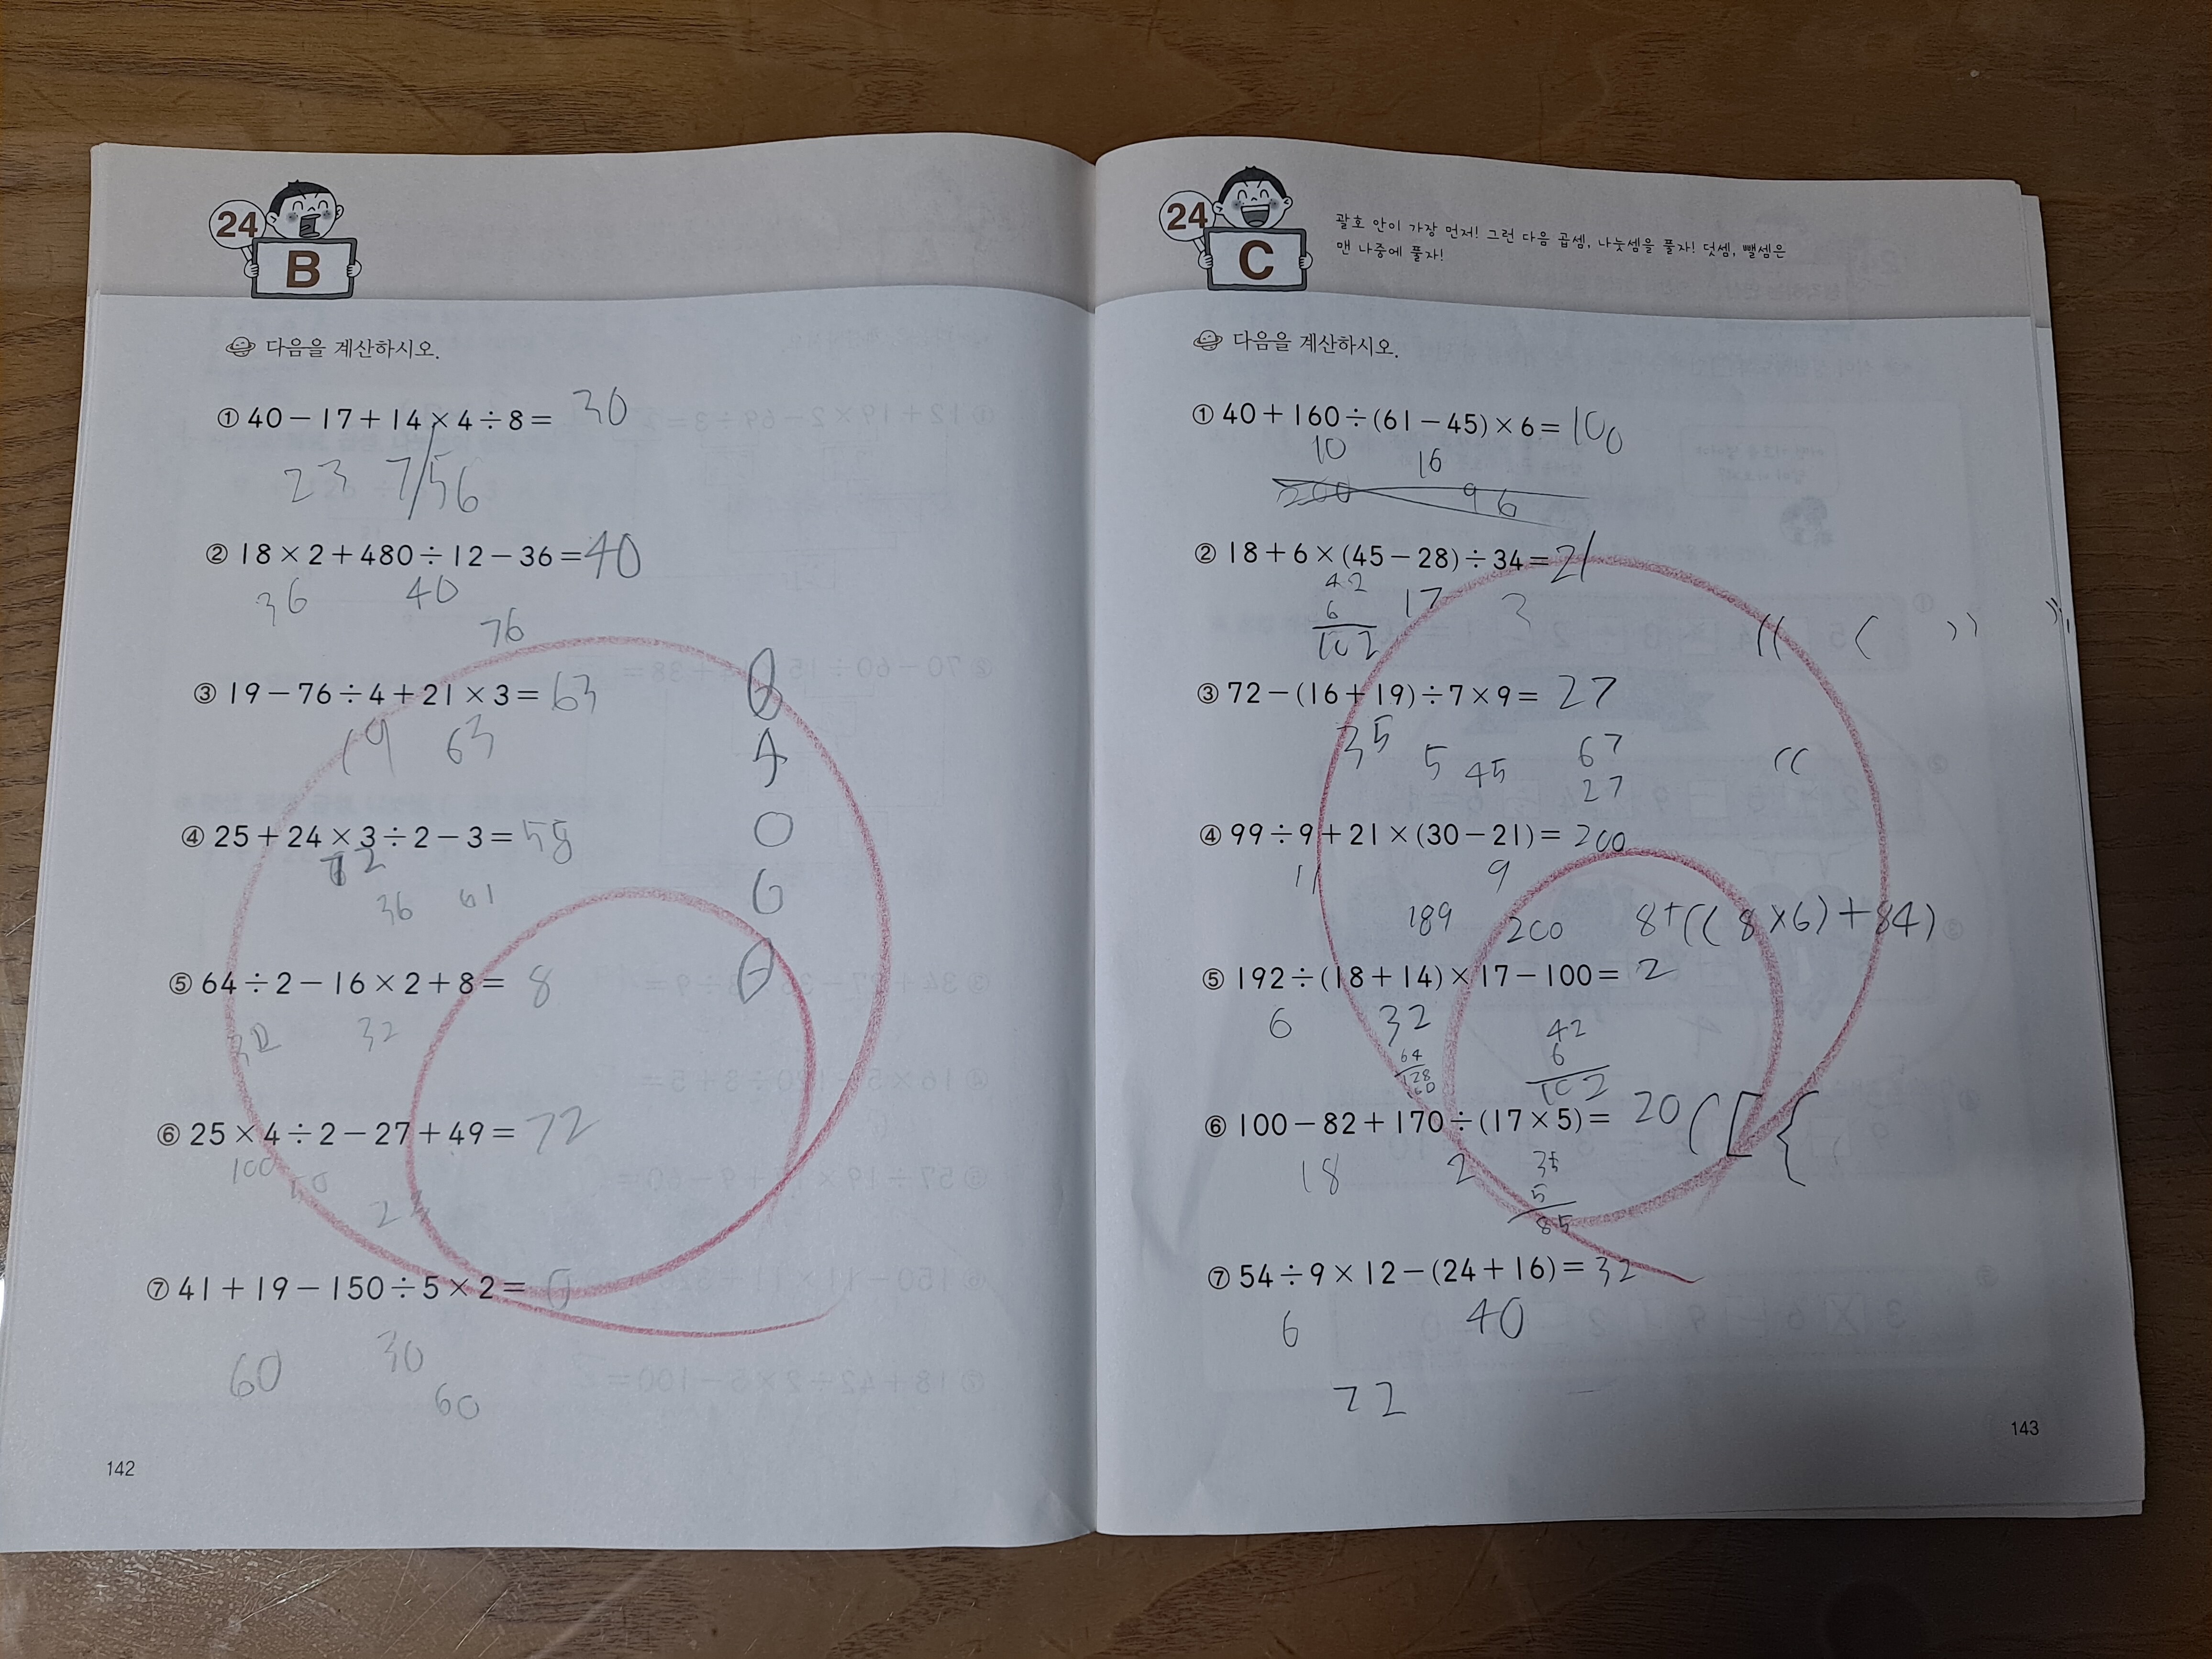 24
B
다음을 계산하시오.
① 40-17+14×4÷8= 30
23 7/56
② 18×2+480÷12-36=40
36 40
76
③ 19-76÷4+21×3= 63
19 63
④ 25+24×3÷2-3= 58
72
36 61
⑤ 64÷2-16×2+8= 8
32 32
⑥ 25×4÷2-27+49= 72
100 50
23
⑦ 41+19-150÷5×2= 0
60 30
60
142
24
C
괄호 안이 가장 먼저! 그런 다음 곱셈, 나눗셈을 풀자! 덧셈, 뺄셈은
맨 나중에 풀자!
다음을 계산하시오.
① 40+160÷(61-45)×6= 100
10 16
200 96
② 18+6×(45-28)÷34= 21
42
6 17 3
102
(( ( ))
③ 72-(16+19)÷7×9= 27
35 5 45 67
27
((
④ 99÷9+21×(30-21)= 200
11 9
189 200 8+((8×6)+84)
⑤ 192÷(18+14)×17-100= 2
6 32 42
64 6
128 102
⑥ 100-82+170÷(17×5)= 20 ( [ {
18 2 35
5
85
⑦ 54÷9×12-(24+16)= 32
6 40
72
143